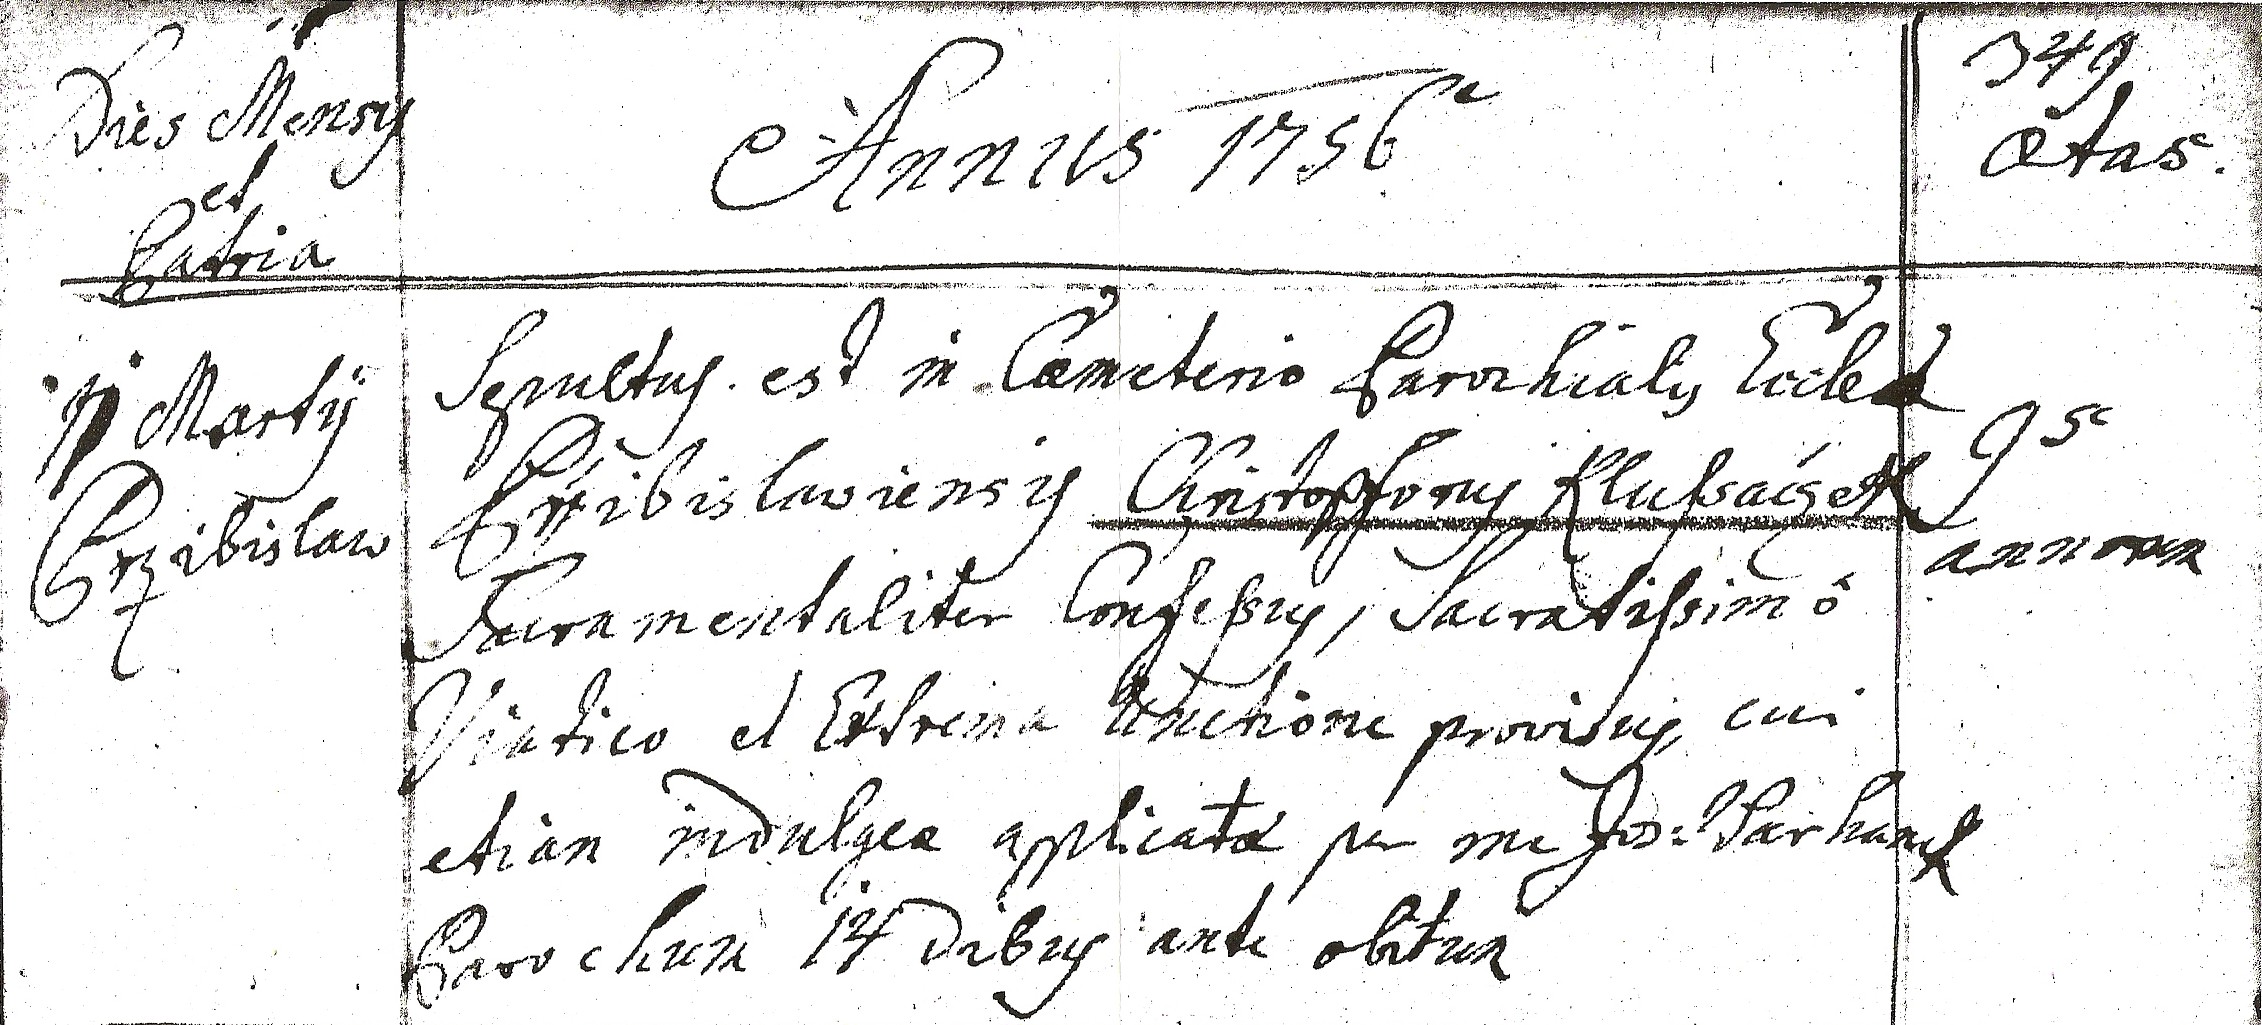 Dies Mensis
et
Patria
Annus 1756
349
Ætas.
Martij
Przibislaw
Sepultus est in Cœmeterio Parochialis Eccle
Przibislawiensis Christophorus
95
annorum
Sacramentaliter Confessus, Sacratissimô
Viatico et Extrema Unctione provisus, cui
etiam indulgeæ applicatæ per me Jos: Parhanek
Parochum 14 Dibus ante obitum